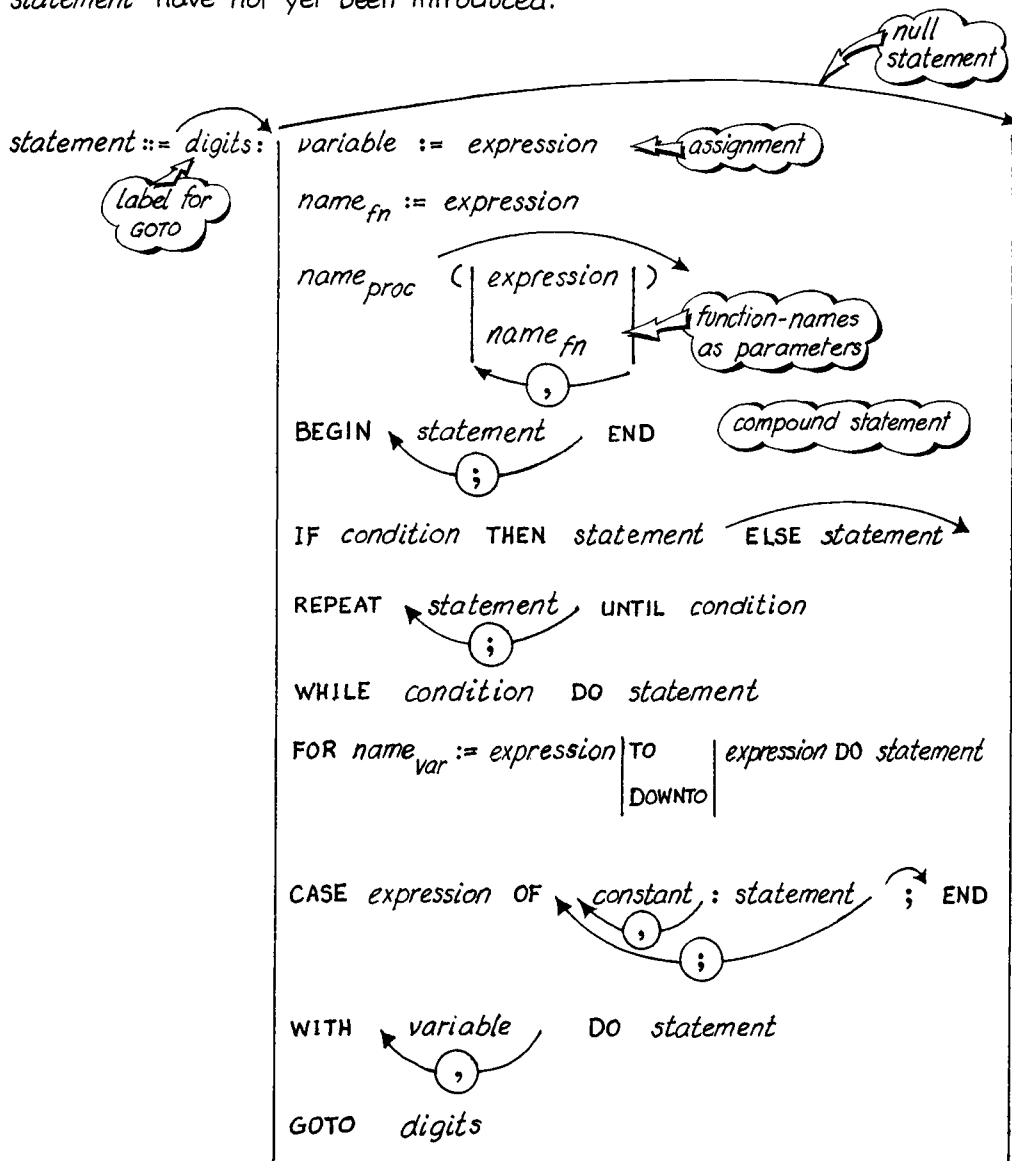 statement have not yet been introduced.
null
statement
statement ::= digits: variable := expression assignment
label for
GOTO
name fn := expression
name proc ( expression )
name fn
,
function-names
as parameters
BEGIN statement END compound statement
;
IF condition THEN statement ELSE statement
REPEAT statement UNTIL condition
;
WHILE condition DO statement
FOR name var := expression TO expression DO statement
DOWNTO
CASE expression OF constant : statement ; END
,
;
WITH variable DO statement
,
GOTO digits